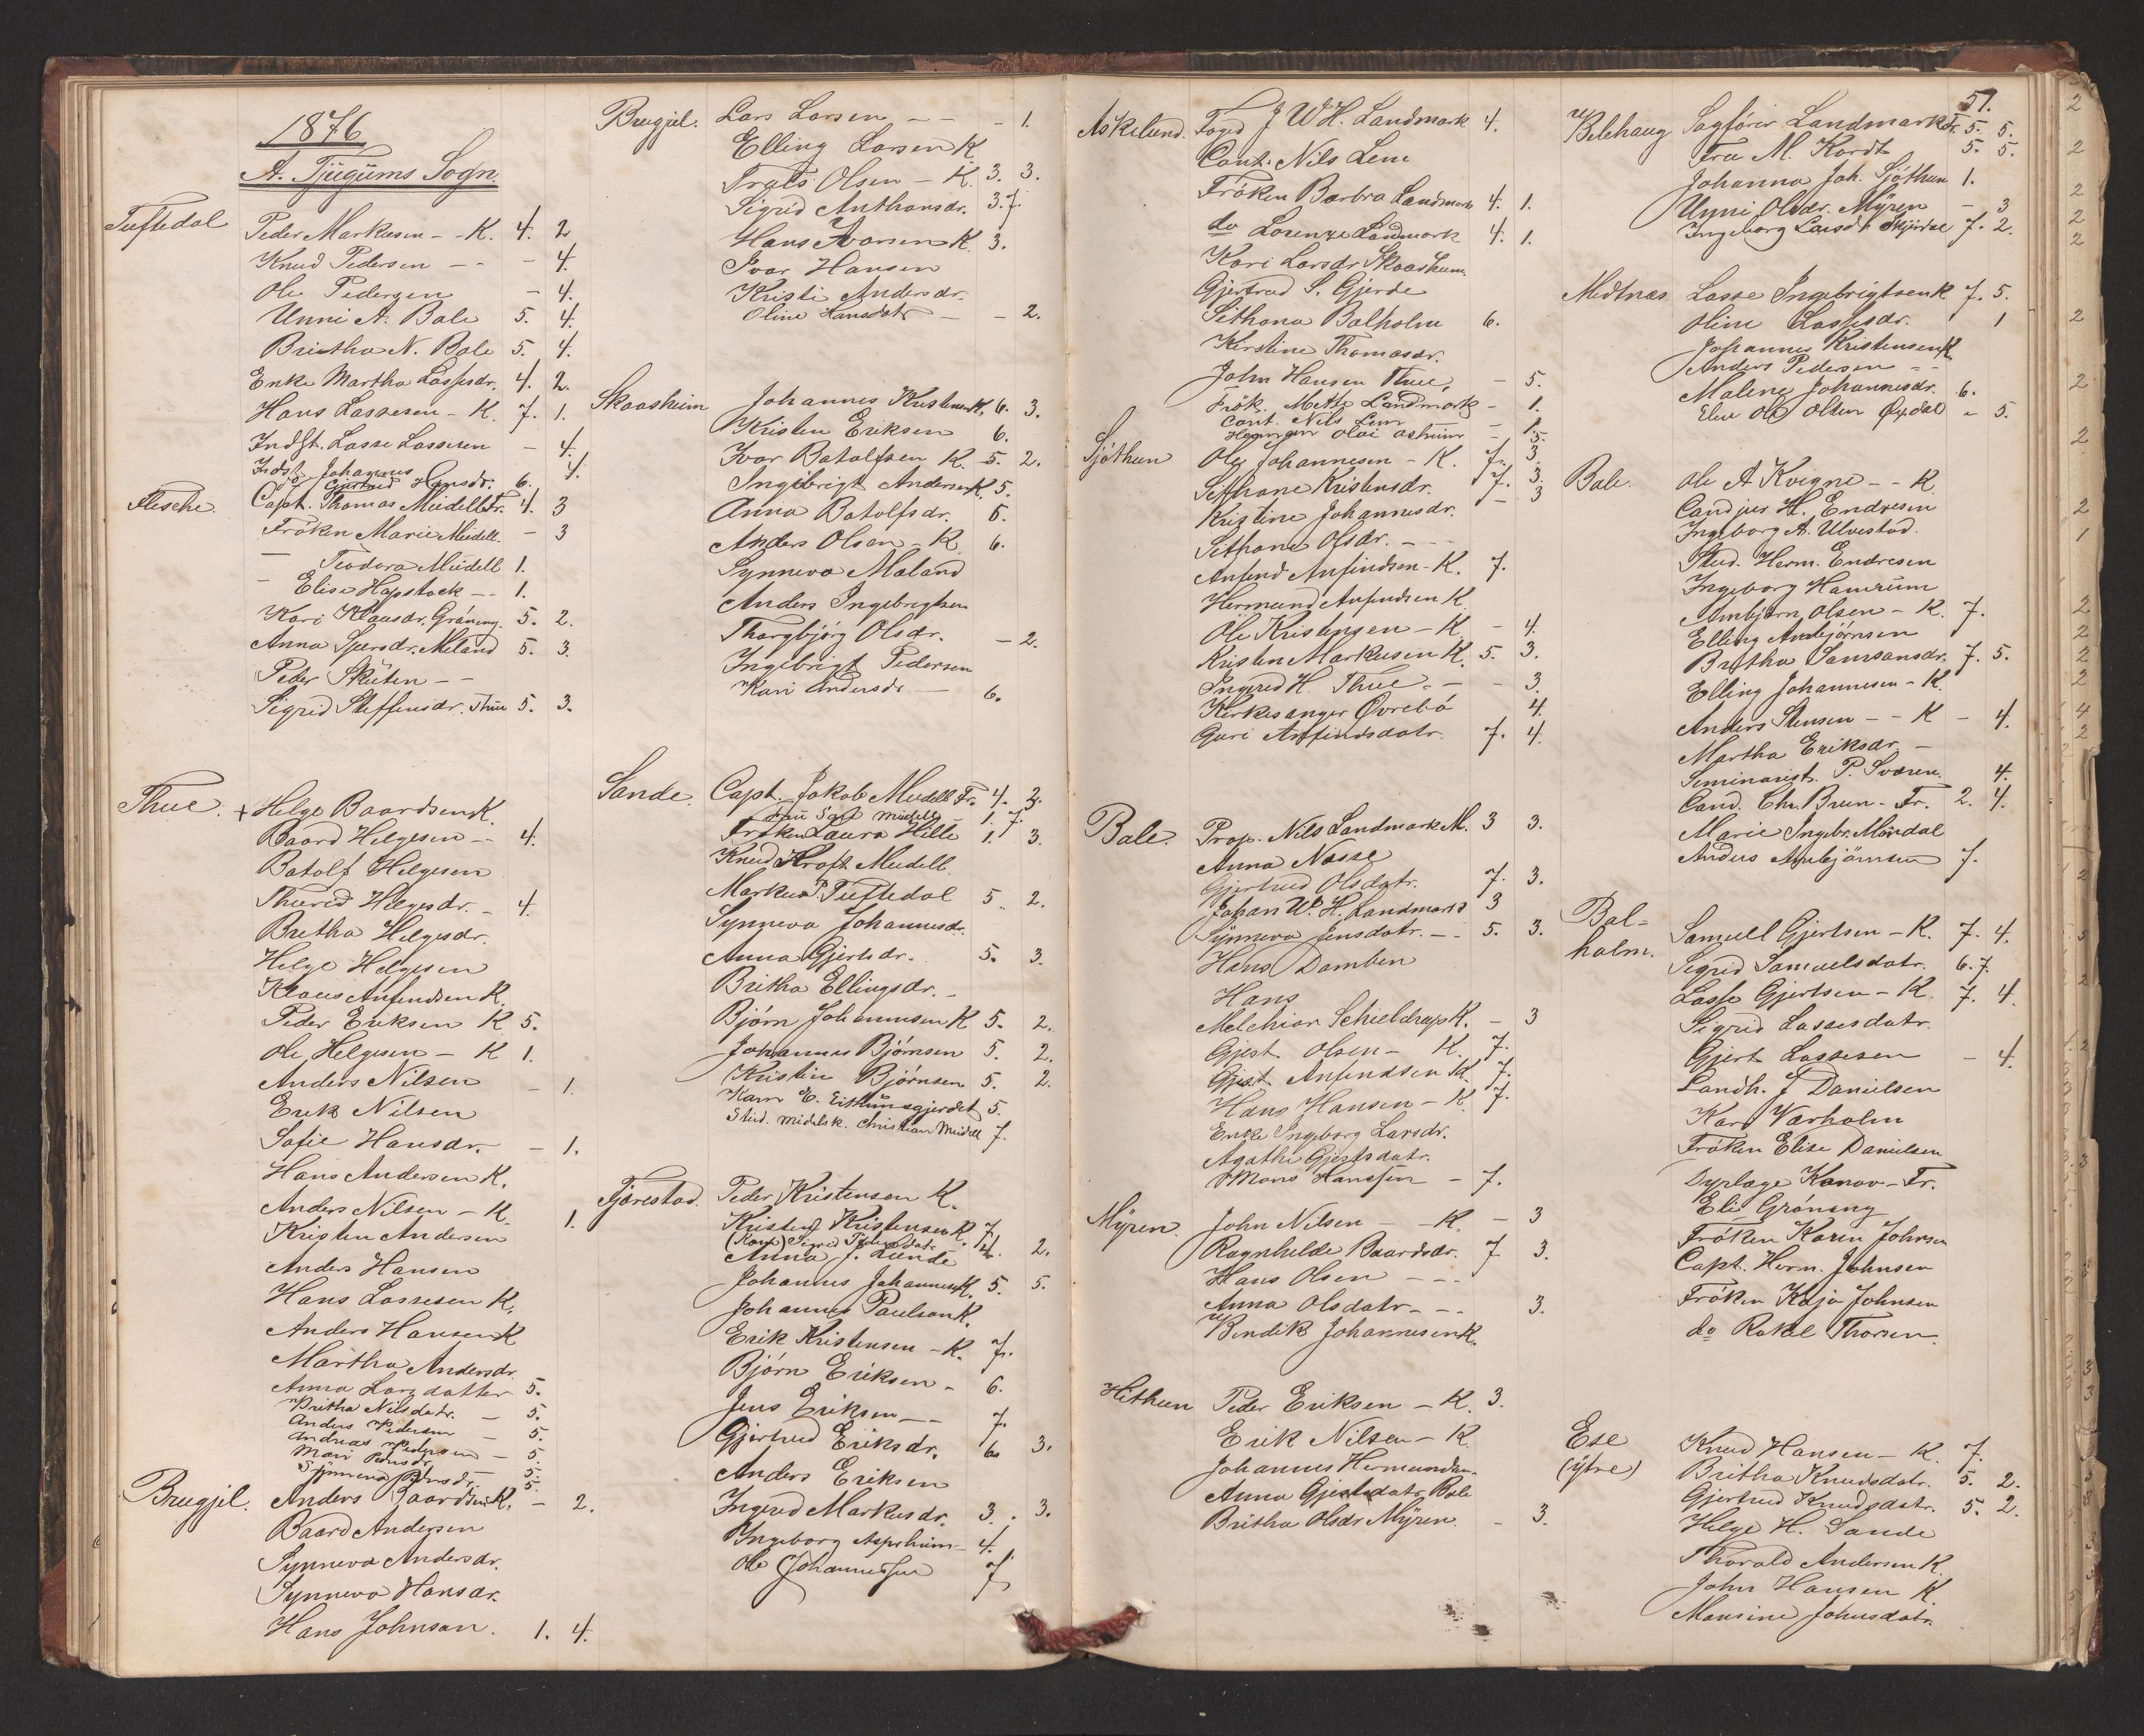 1876
A. Tjugums Sogn.
Tuftedal Peder Markusen - - K. 4. 2
Knud Pedersen - - - 4.
Ole Pedersen - 4.
Unni A. Bale 5. 4.
Britha N. Bale 5. 4.
Enke Martha Lassesdr. 4. 2.
Hans Lassesen - K. 7. 1.
Indst. Lasse Lassesen - 4.
Indst. Johannes 4.
do Gjertrud Hansdr. 6.
Flesche. Capt. Thomas Meidell Fr. 4. 3
Fröken Marie Meidell - 3
— Teodora Meidell 1.
— Elise Hapstock - - 1.
Kari Klausdr. Gröning. 5. 2.
Anna Spersdr. Meland 5. 3.
Peder Skuten - -
Sigrid Steffensdr. Thue 5. 3.
Thue. + Helge Baardsen K.
Baard Helgesen - - 4.
Batolf Helgesen
Thurid Helgesdr. - 4.
Bretha Helgesdr.
Helge Helgesen
Klaus Anfindsen K.
Peder Eriksen K 5.
Ole Helgesen - K 1.
Anders Nilsen - 1.
Erik Nilsen
Sofie Hansdr. - 1.
Hans Andersen K.
Anders Nilsen - K. 1.
Kristen Andersen
Anders Hansen
Hans Lassesen K.
Anders Hansen K
Martha Andersdr.
Anna Larsdatter 5.
Britha Nilsdatr. - 5.
Anders Pedersen - 5.
Andreas Pedersen - 5.
Mari Pedersdr. 5.
Synneva Pedersdr. 5.
Brugjel. Anders Baardsen K. - 2.
Baard Andersen
Synneva Andersdr.
Synneva Hansdr.
Hans Johnson. 1. 4.
Brugjel. Lars Larsen - - - 1.
Elling Larsen K
Truls Olsen - K. 3. 3.
Sigrid Anthonsdr. 3. 7.
Hans Ivarsen K 3.
Ivar Hansen
Kristi Andersdr.
Oline Hansdatr - - 2.
Skaasheim Johannes Kristensen K. 6. 3.
Kristen Eriksen 6.
Ivar Batolfsen K. 5. 2.
Ingebrigt Andersen K. 5.
Anna Batolfsdr. 6.
Anders Olsen - K. 6.
Synneva Maland
Anders Ingebrigtsen
Thorgbjörg Olsdr. - 2.
Ingebrigt Pedersen
Kari Andersdr - 6.
Sande. Capt. Jakob Meidell Fr. 4. 3.
Fru Sofi Meidell - 1. 7.
Fröken Laura Hille 1. 3.
Knud Kroft Meidell
Markus P. Tuftedal 5. 2.
Synneva Johannesdr.
Anna Gjertsdr. 5. 3.
Britha Ellingsdr. -
Bjørn Johannesen K 5. 2.
Johannes Bjørnsen 5. 2.
Kristin Bjørnsen 5. 2.
Kari E. Eithunsgjerdet 5.
Stud. Midelsk. Christian Meidell 7.
Tjærestad. Peder Kristensen K.
Kristen Kristensen K. 7.
(Kone) Sigrid Pedersdatr
Anna J. Lunde 4. 2.
Johannes Johannesen K. 5. 5.
Johannes Paulsen K.
Erik Kristensen - K. 7.
Bjørn Eriksen - 6.
Jens Eriksen - - 7.
Gjertrud Eriksdr. 6. 3.
Anders Eriksen
Ingerid Markusdr. 3. 3.
Ingeborg Asperheim - 4.
Ole Johannessen 7
Askelund. Foged J W H. Landmark 4.
Cont. Nils Lem
Fröken Barbra Landmark 4. 1.
do Lorenze Landmark 4. 1.
Kari Larsdr Skaasheim
Gjertrud S. Gjerde
Sithona Balholm 6.
Kirstine Thomasdr.
John Hansen Thue, - 5.
Frök. Mette Landmark - 1.
Cont. Nils Lem - 1.
Herman Olai Ostheim - 5.
Sjøthun Ole Johannesen - K. 7. 3.
Sithane Kristensdr. 7. 3.
Kristine Johannesdr. - 3
Sithane Olsdr. - - -
Anfind Anfindsen - K. 7.
Hermund Anfindsen K.
Ole Kristensen - K. - 4.
Kristen Markusen K. 5. 3.
Ingerid H. Thue. - - 3.
Kirkesanger Øvrebø 4.
Guri Anfindsdatr. 7. 4.
Bale. Prop. Nils Landmark M. 3 3.
Anna Nasse
Gjertrud Olsdatr. 7. 3.
Johan W. H. Landmark 3
Synneva Jensdatr. - - 5. 3.
Hans Damben
Hans
Melchior Schieldrop K. - 3
Gjest Olsen - K. 7.
Gjest Anfindsen K. 7.
Hans Hansen - K. 7.
Enke Ingeborg Larsdr.
Agathe Gjertsdatr.
Mons Hanssen - 7.
Myren John Nilsen - - K. - 3
Ragnhilde Baardsdr. 7 3.
Hans Olsen - - -
Anna Olsdatr - - - 3.
Bendik Johannesen K.
Hithun Peder Eriksen - K. 3.
Erik Nilsen - K.
Johannes Hermundsen.
Anna Gjestsdatr. Bale
Britha Olsdr Myren. - 3.
51.
Belehaug Sagförer Landmark Fr. 5. 5.
Fru M. Kordt 5. 5.
Johanna Joh. Sjøthun 1.
Unni Olsdr. Myren - 3
Ingeborg Larsdr Skjerdal 7. 2.
Midtnæs Lasse Ingebrigtsen K 7. 5.
Oline Lassesdr. 1
Johannes Kristensen K.
Anders Pedersen - -
Malene Johannesdr. 6.
Elev Ole Olsen Øxdal - 5.
Bale. Ole A Kvigne - - K
Candjus H. Endresen
Ingeborg A. Ulvestad.
Stud. Herm. Endresen
Ingeborg Hamrum
Ambjørn Olsen - K. 7.
Elling Ambjörnsen
Britha Samsansdr. 7. 5.
Elling Johannesen - K.
Anders Stensen - - K - 4.
Martha Eriksdr. -
Seminarist. P. Sværen 4.
Cand. Chr. Brun - Fr. 2. 4.
Marie Ingebr. Mundal
Anders Ambjörnsen 7.
Bal=
holm. Samuel Gjertsen - K. 7. 4.
Sigrid Samuelsdatr. 6. 7.
Lasse Gjertsen - K. 7. 4.
Sigrid Lassesdatr.
Gjert Lassesen - 4.
Landh. J Danielsen
Kari Værholm
Fröken Elise Danielsen
Dyrlæge Kanav - Fr.
Eli Grønsng
Fröken Karen Johnsen
Capt. Herm. Johnsen
Fröken Kaja Johnsen
do Rakel Thorsen.
Ese
(ytre) Knud Hansen - K. 7.
Britha Knudsdatr. 5. 2.
Gjertrud Knudsdatr. 5. 2.
Helge H. Sande
Thorald Andersen K.
John Hansen K.
Mansine Johnsdatr.